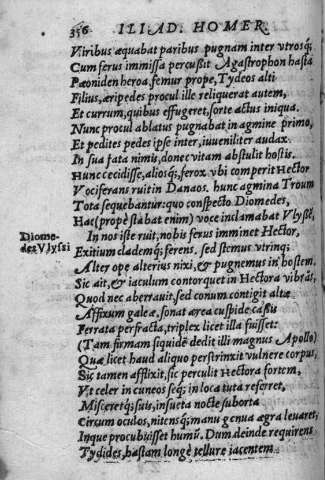 356 ILIAD. HOMER.
Viribus æquabat paribus pugnam inter vtrosq;
Cum ferus immissa percussit Agastrophon hasta
Pæoniden heroa, femur prope, Tydeos alti
Filius, æripedes procul ille reliquerat autem,
Et currum, quibus effugeret, sorte actus iniqua.
Nunc procul ablatus pugnabat in agmine primo,
Et pedites pedes ipse inter, iuueniliter audax.
In sua fata nimis, donec vitam abstulit hostis.
Hunc cecidisse, aliosq; ferox vbi comperit Hector
Vociferans ruit in Danaos. hunc agmina Troum
Tota sequebantur: quo conspecto Diomedes,
Hac (prope stabat enim) voce inclamabat Vlyssē,
Diome-
des Vlyssi
In nos iste ruit, nobis ferus imminet Hector,
Exitium clademq; ferens. sed stemus vtrinq;
Alter ope alterius nixi, & pugnemus in hostem.
Sic ait, & iaculum contorquet in Hectora vibrās,
Quod nec aberrauit, sed conum contigit altæ
Affixum galeæ, sonat ærea cuspide cassis
Ferrata perfracta, triplex licet illa fuisset:
(Tam firmam siquidē dedit illi magnus Apollo)
Quæ licet haud aliquo perstrinxit vulnere corpus,
Sic tamen afflixit, sic perculit Hectora fortem,
Vt celer in cuneos seq; in loca tuta referret,
Misceretq; suis, insueta nocte suborta
Circum oculos, nitensq; manu genua ægra leuaret,
Inque procubuisset humū. Dum deinde requirens
Tydides, hastam longè tellure iacentem